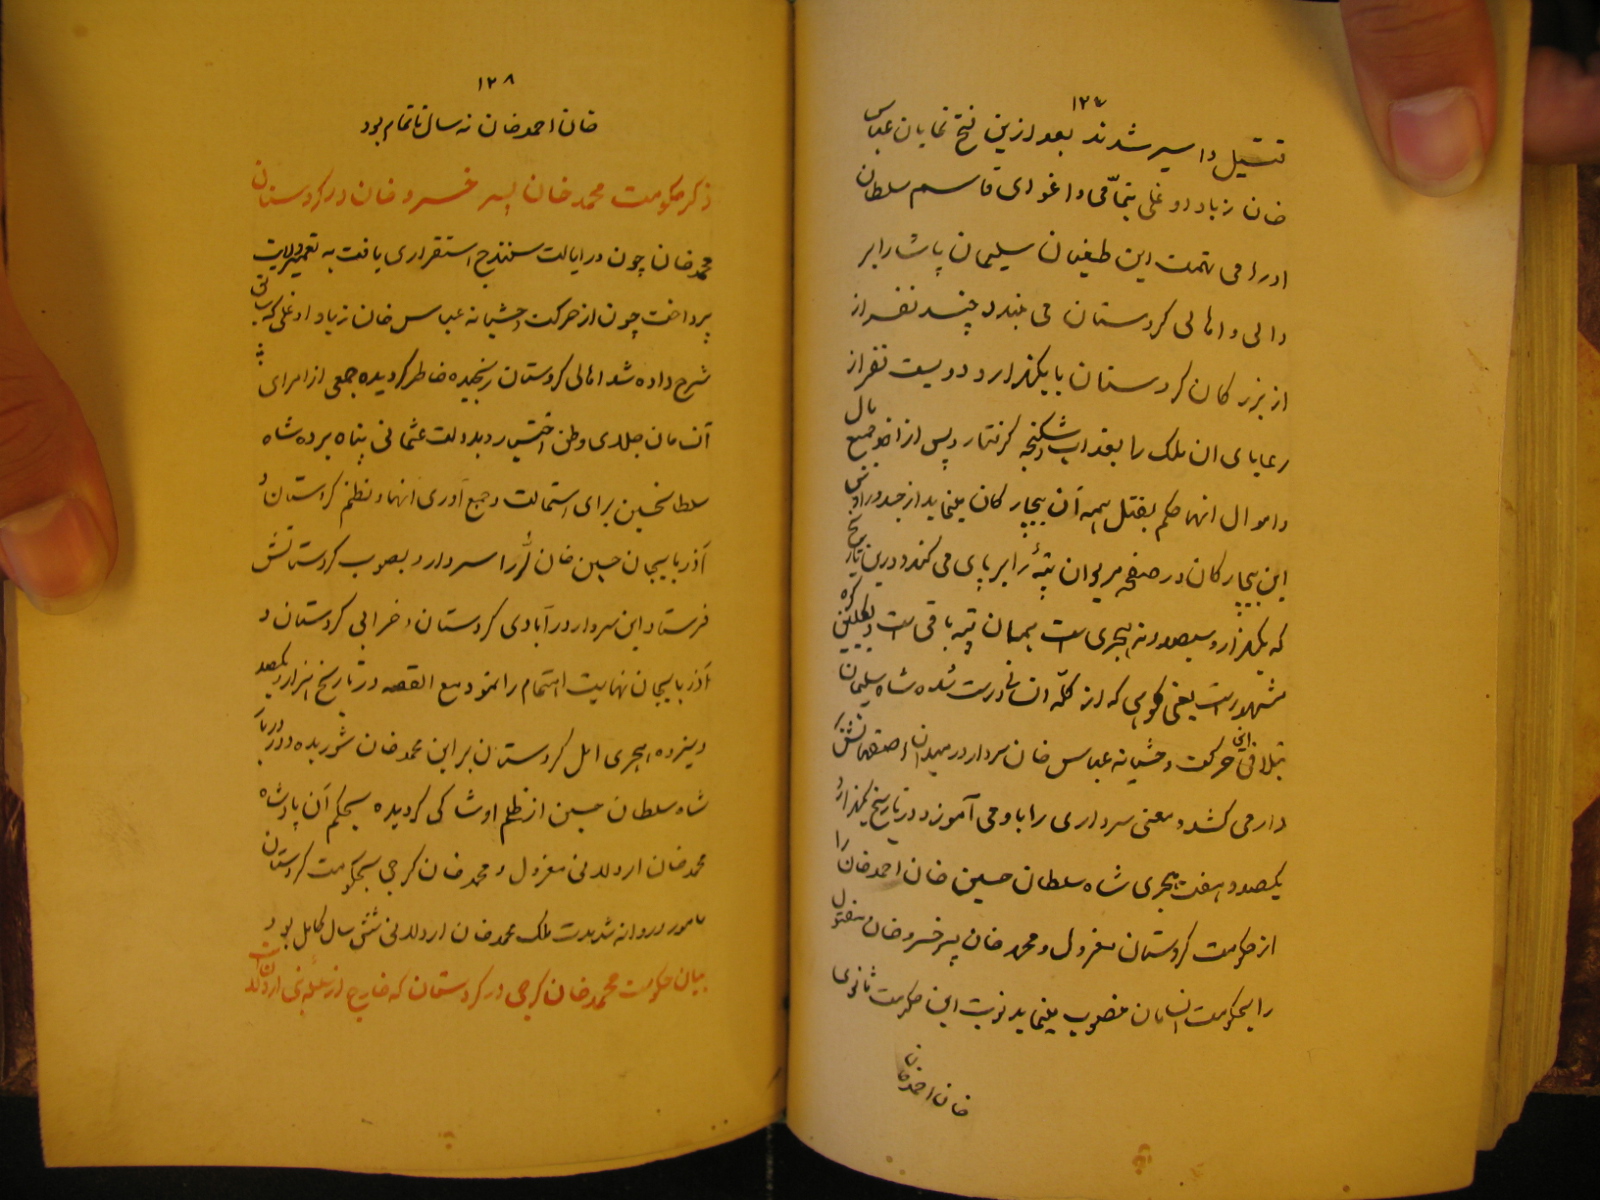 ۱۲۷
قتیل و اسیر شدند بعد ازین فتح نمایان عباس
خان زیاد اوغلی بنمامی و اغوای قاسم سلطان
اورامی تهمت این طغیان سلیمان پاشا را بر
والی و اهالی کردستان می بندد چند نفر از
از بزرکان کردستان با یکهزار و دویست نفر از
رعایای ان ملک را بعذاب و شکنجه کرفتار و پس از اخذ جمیع مال
و اموال انها حکم بقتل همه آن بیچارکان مینماید از جدو رؤس
این بیچارکان در صفحه مریوان تپهٔ را بر پای می کند و درین تاریخ
که یکهزار و سیصد و نه هجری است همان تپه باقی است و بکله‌کوه
مشهور است یعنی کوهی که از کلّه انسانی درست شده شاه سلیمان
بتلافی این حرکت وحشیانه عباس خان سردار در میدان اصفهانش
دار می کشد و معنی سرداری را باو می آموزد و در تاریخ یکهزار و
یکصد و هفت هجری شاه سلطان حسین خان احمد خان را
از حکومت کردستان معزول و محمد خان پسر خسرو خان مقتول
را بحکومت انسامان منصوب مینماید نوبت این حکومت ثانوی
خان احمد خان
۱۲۸
خان احمد خان نه سال تا تمام بود
ذکر حکومت محمد خان پسر خسرو خان در کردستان
محمد خان چون در ایالت سنندج استقراری یافت به تعمیر ولایت
پرداخت چون از حرکت وحشیانه عباس خان زیاد اوغلی که سابق
شرح داده شد اهالی کردستان رنجیده خاطر کردیده جمعی از امرای
آن سامان جلای وطن اختیار و بدولت عثمانی پناه برده شاه
سلطانحسین برای استمالت و جمع آوری انها و نظم کردستان و
آذربایجان حسین خان لر را سردار و بصوب کردستانش
فرستاد این سردار در آبادی کردستان و خرابی کردستان و
آذربایجان نهایت اهتمام را نمود مع القصه در تاریخ هزار و یکصد
و سیزده هجری اهل کردستان بر این محمد خان شوریده و در دربار
شاه سلطان حسین از ظلم او شاکی کردیده بحکم آن پادشاه
محمد خان اردلانی معزول و محمد خان کرجی بحکومت کردستان
مامور و روانه شد مدت ملک محمد خان اردلانی شش سال کامل بود
بیان حکومت محمد خان کرجی در کردستان که خارج از سلسله بنی اردلان است